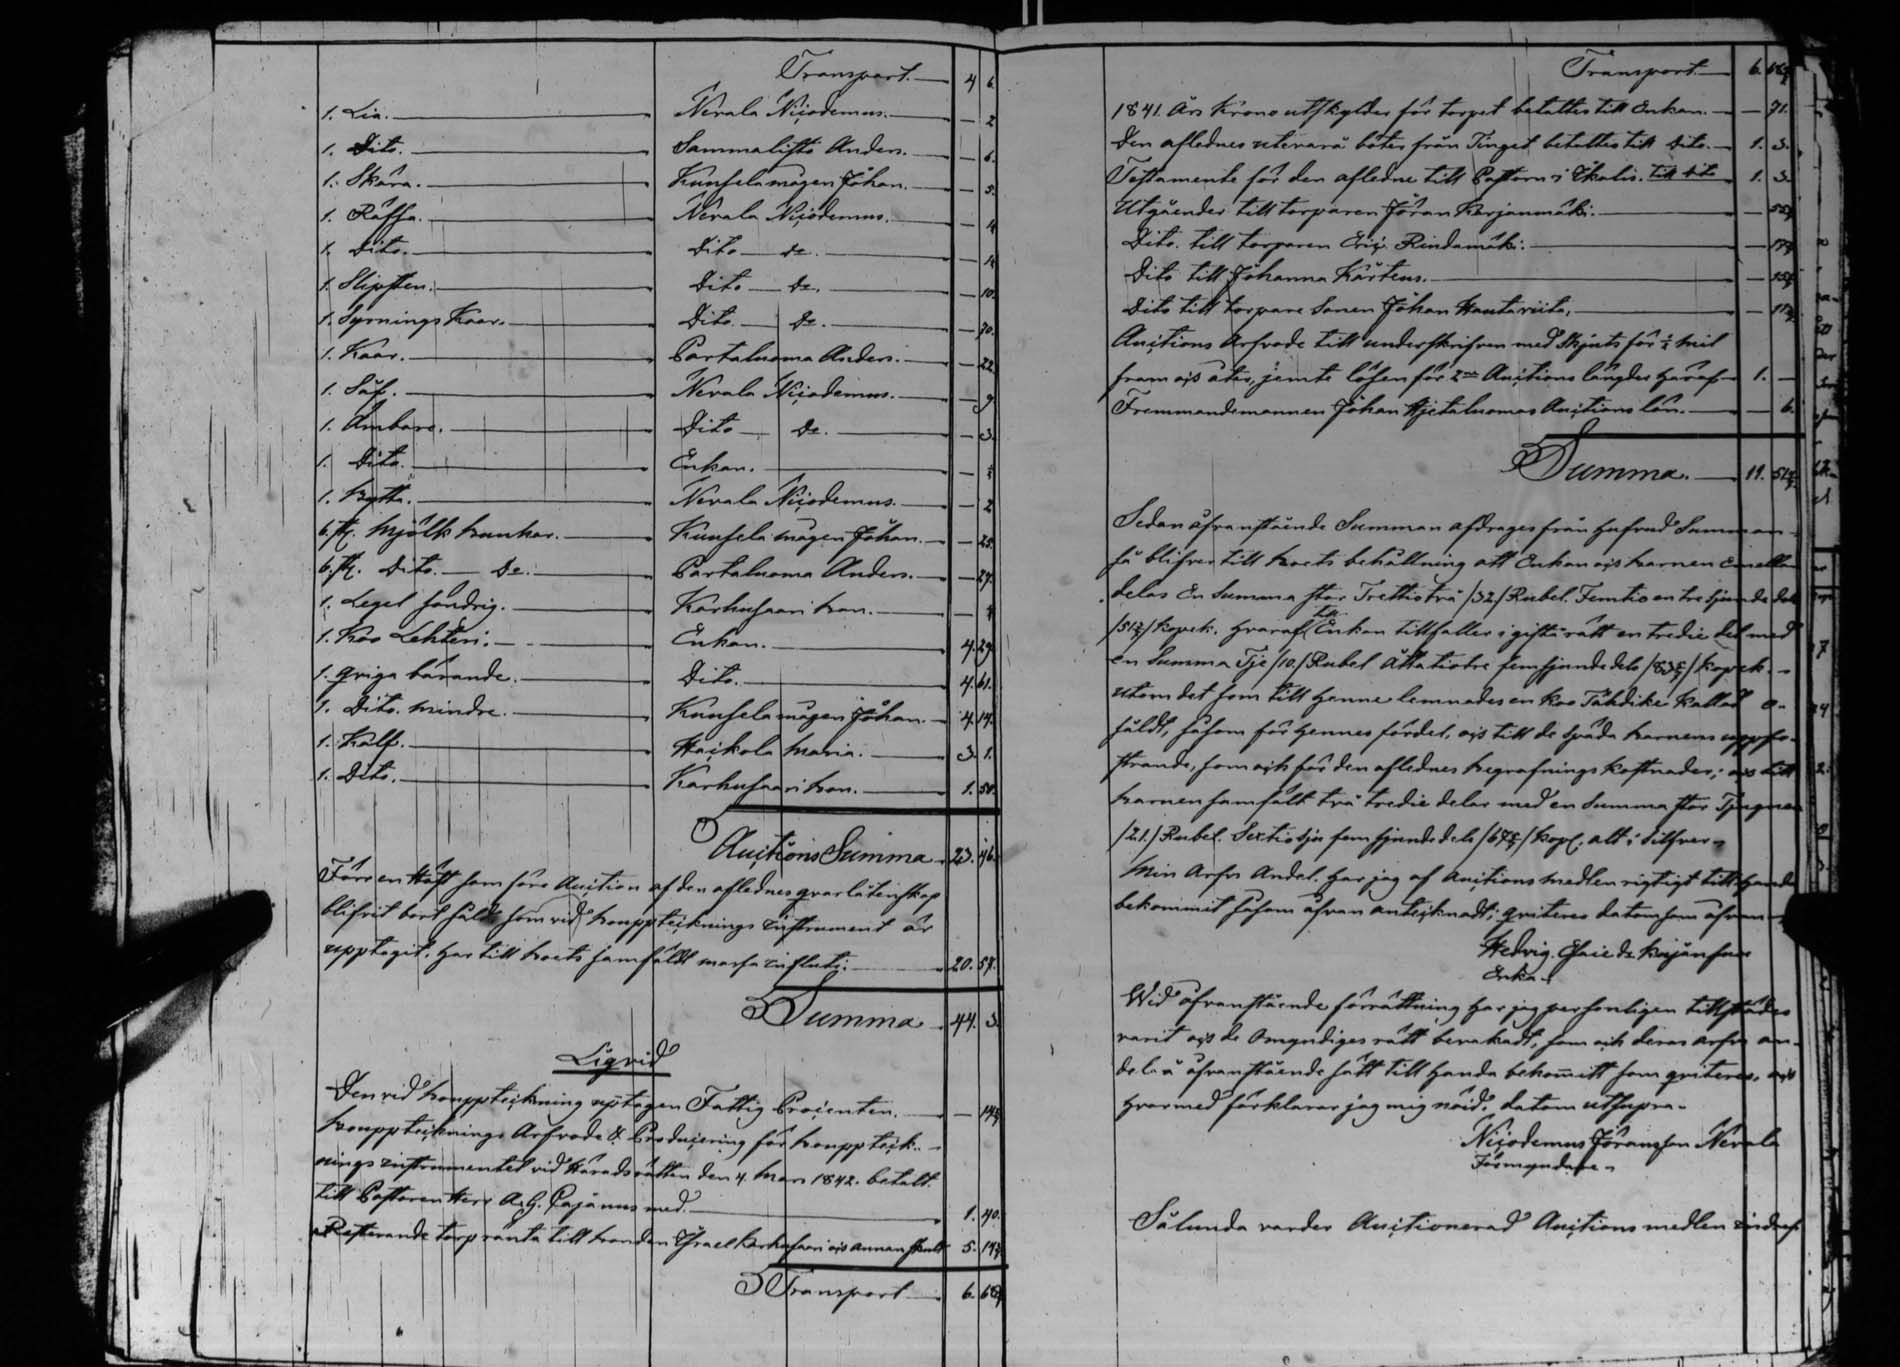 Transport. 4 6.
1. Lia. Nevala Nicodemus. — 2
1. Dito. Sammalisto Anders. — 6.
1. Skära. Kunselamägen Johan. — 5.
1. Räffsa. Nevala Nicodemus. — 4
1. Dito. Dito De.
1. Slipsten. Dito De. — 10.
1. Syrnings Kaar. Dito De. — 70.
1. Kaar. Partaluoma Anders. — 22
1. Såf. Nevala Nicodemus. — 9
1. Ämbare. Dito De. — 3.
1. Dito. Enkan.
1. Bytta. Nevala Nicodemus. — 2
6. st. Mjölk bunkar. Kunselamägen Johan. — 25.
6. st. Dito De. Partaluoma Anders. — 27.
1. Legel söndrig. Karhusaari
1. Koo Lehteri: Enkan. 4. 29.
1. qviga bärande. Dito. 4. 61.
1. Dito. mindre. Kunselamägen Johan. 4. 14.
1. Kalf. Haickola Maria. 3. 1.
1. Dito. Karhusaari 1. 50.
Auctions Summa 23. 46.
Före en Häst som före Auction af den aflednes qvarlåtenskap
blifvit bort såld, som vid boupptecknings instrument är
upptagit. har till boets samfäldt massa influti. 20. 57.
Summa 44. 3.
Liqvid
Den vid bouppteckning uptagen Fattig Procenten.
boupptecknings Arfvode & Producering för boupptek-
nings instrumentet vid Häradsrätten den 4. Mars 1842. betalt.
till Pastoren Herr A. G. Cajanus med. 1. 40.
Resterande torp ränta till bonden Israel Karhusaari och annan skuld 5.
Transport 6.
Transport 6.
1841. Års Krono utskylder för torpet betaltes till Enkan. — 71.
Den aflednes böter från Tinget betaltes till Dito. 1. 3.
Testamente för den afledne till Pastorn i
Utgåendes till torparen Jöran Karjanmäki.
Dito. till torparen Eric Rindamäki.
Dito till Johanna Kårtens.
Dito till torpare Sonen Johan Hautariito.
Auctions Arfvode till underskrifven med Skjuts för ½ mil
fram och åter, jemte lösen för 2ne Auctions längder häraf 1. —
Fremmandemannen Johan Hietaluomas Auctions lön. — 6.
Summa. 11.
Sedan åfvanstående Summan afdrages från hufvud Summan
så blifver till boets behållning att Enkan och barnen emellan
delas En Summa stor Trettiotvå /32/ Rubel. Femtio en tre sjundedels
kopek. hvaraf Enkan tillfaller i giftorätt en tredie del med
en Summa Tje /10./ Rubel Åttatiotre femsjundedels kopek.
utom det som till henne lemnades en Koo Tähdike Kallad o-
såldt, såsom för hennes fördel, och till de späda barnens uppfo-
strande, som och för den aflednes begrafnings kostnader; och till
barnen samfält två tredie delar med en Summa stor Tjuguen
/21./ Rubel. Sextiosju femsjundedels kop. alt i Silfver.
Min Arfs Andel. har jag af Auctions medlen rigtigt till handa
bekommit såsom åfvan antecknadt; qviteres datom som åfvan
Hedvig Esaie Dr
Enka.
Wid åfvanstående förrättning har jag personligen tillstädes
varit och de Omyndiges rätt bevakadt, som och deras arfs an-
del å åfvanstående sätt till handa bekommitt som qviteres, och
hvarmed förklarar jag mig nöid. datom utsupra.
Nicodemus Jöransson Nevala
Förmyndare.
Sålunda varder Auctionerad Auctions medlen